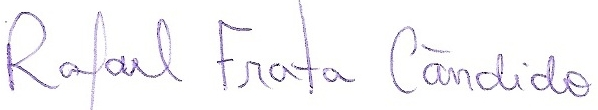 Rafael Frata Cândido